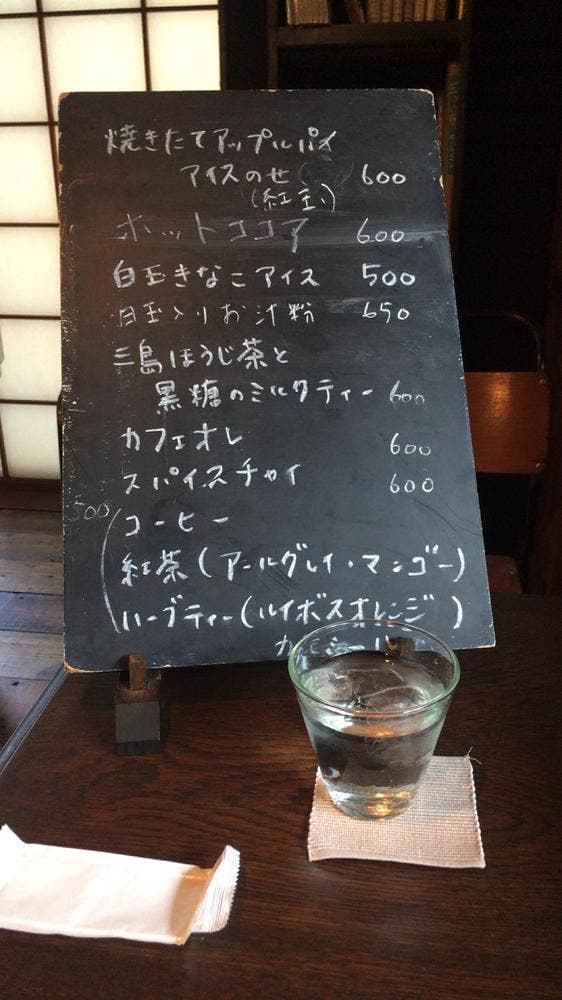 焼きたてアップルパイ
アイスのせ 600
(紅玉)
ホットココア 600
白玉きなこアイス 500
白玉入りお汁粉 650
三島ほうじ茶と
黒糖のミルクティー 600
カフェオレ 600
スパイスチャイ 600
500
コーヒー
紅茶(アールグレイ・マンゴー)
ハーブティー(ルイボスオレンジ)